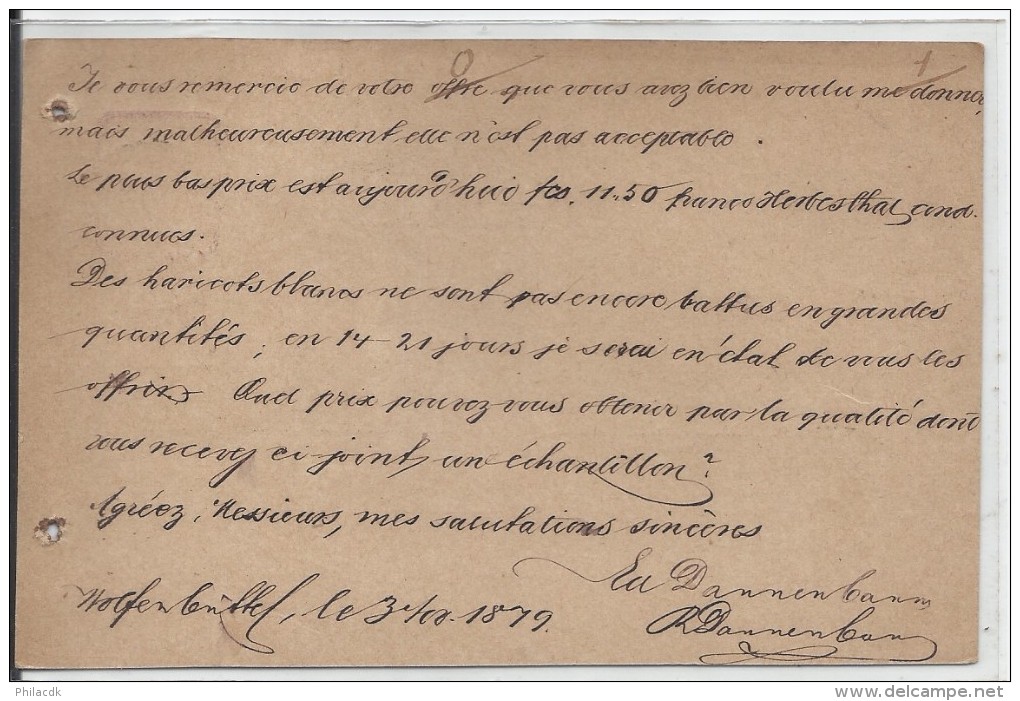 Je vous remercie de votre offre que vous avez bien voulu me donner
mais malheureusement elle n'est pas acceptable.
Le plus bas prix est aujourd'hui fcs. 11.50 franco Herbesthal, cond.
connues.
Des haricots blancs ne sont pas encore battus en grandes
quantités, en 14-21 jours je serai en état de vous les
offrir. Quel prix pouvez vous obtenir par la qualité dont
vous recevez ci joint, un échantillon?
Agréez, Messieurs, mes salutations sincères
Ed Dannenbaum
Wolfenbüttel, le 3 1879.
R Dannenbaum
Philacdk
www.delcampe.net